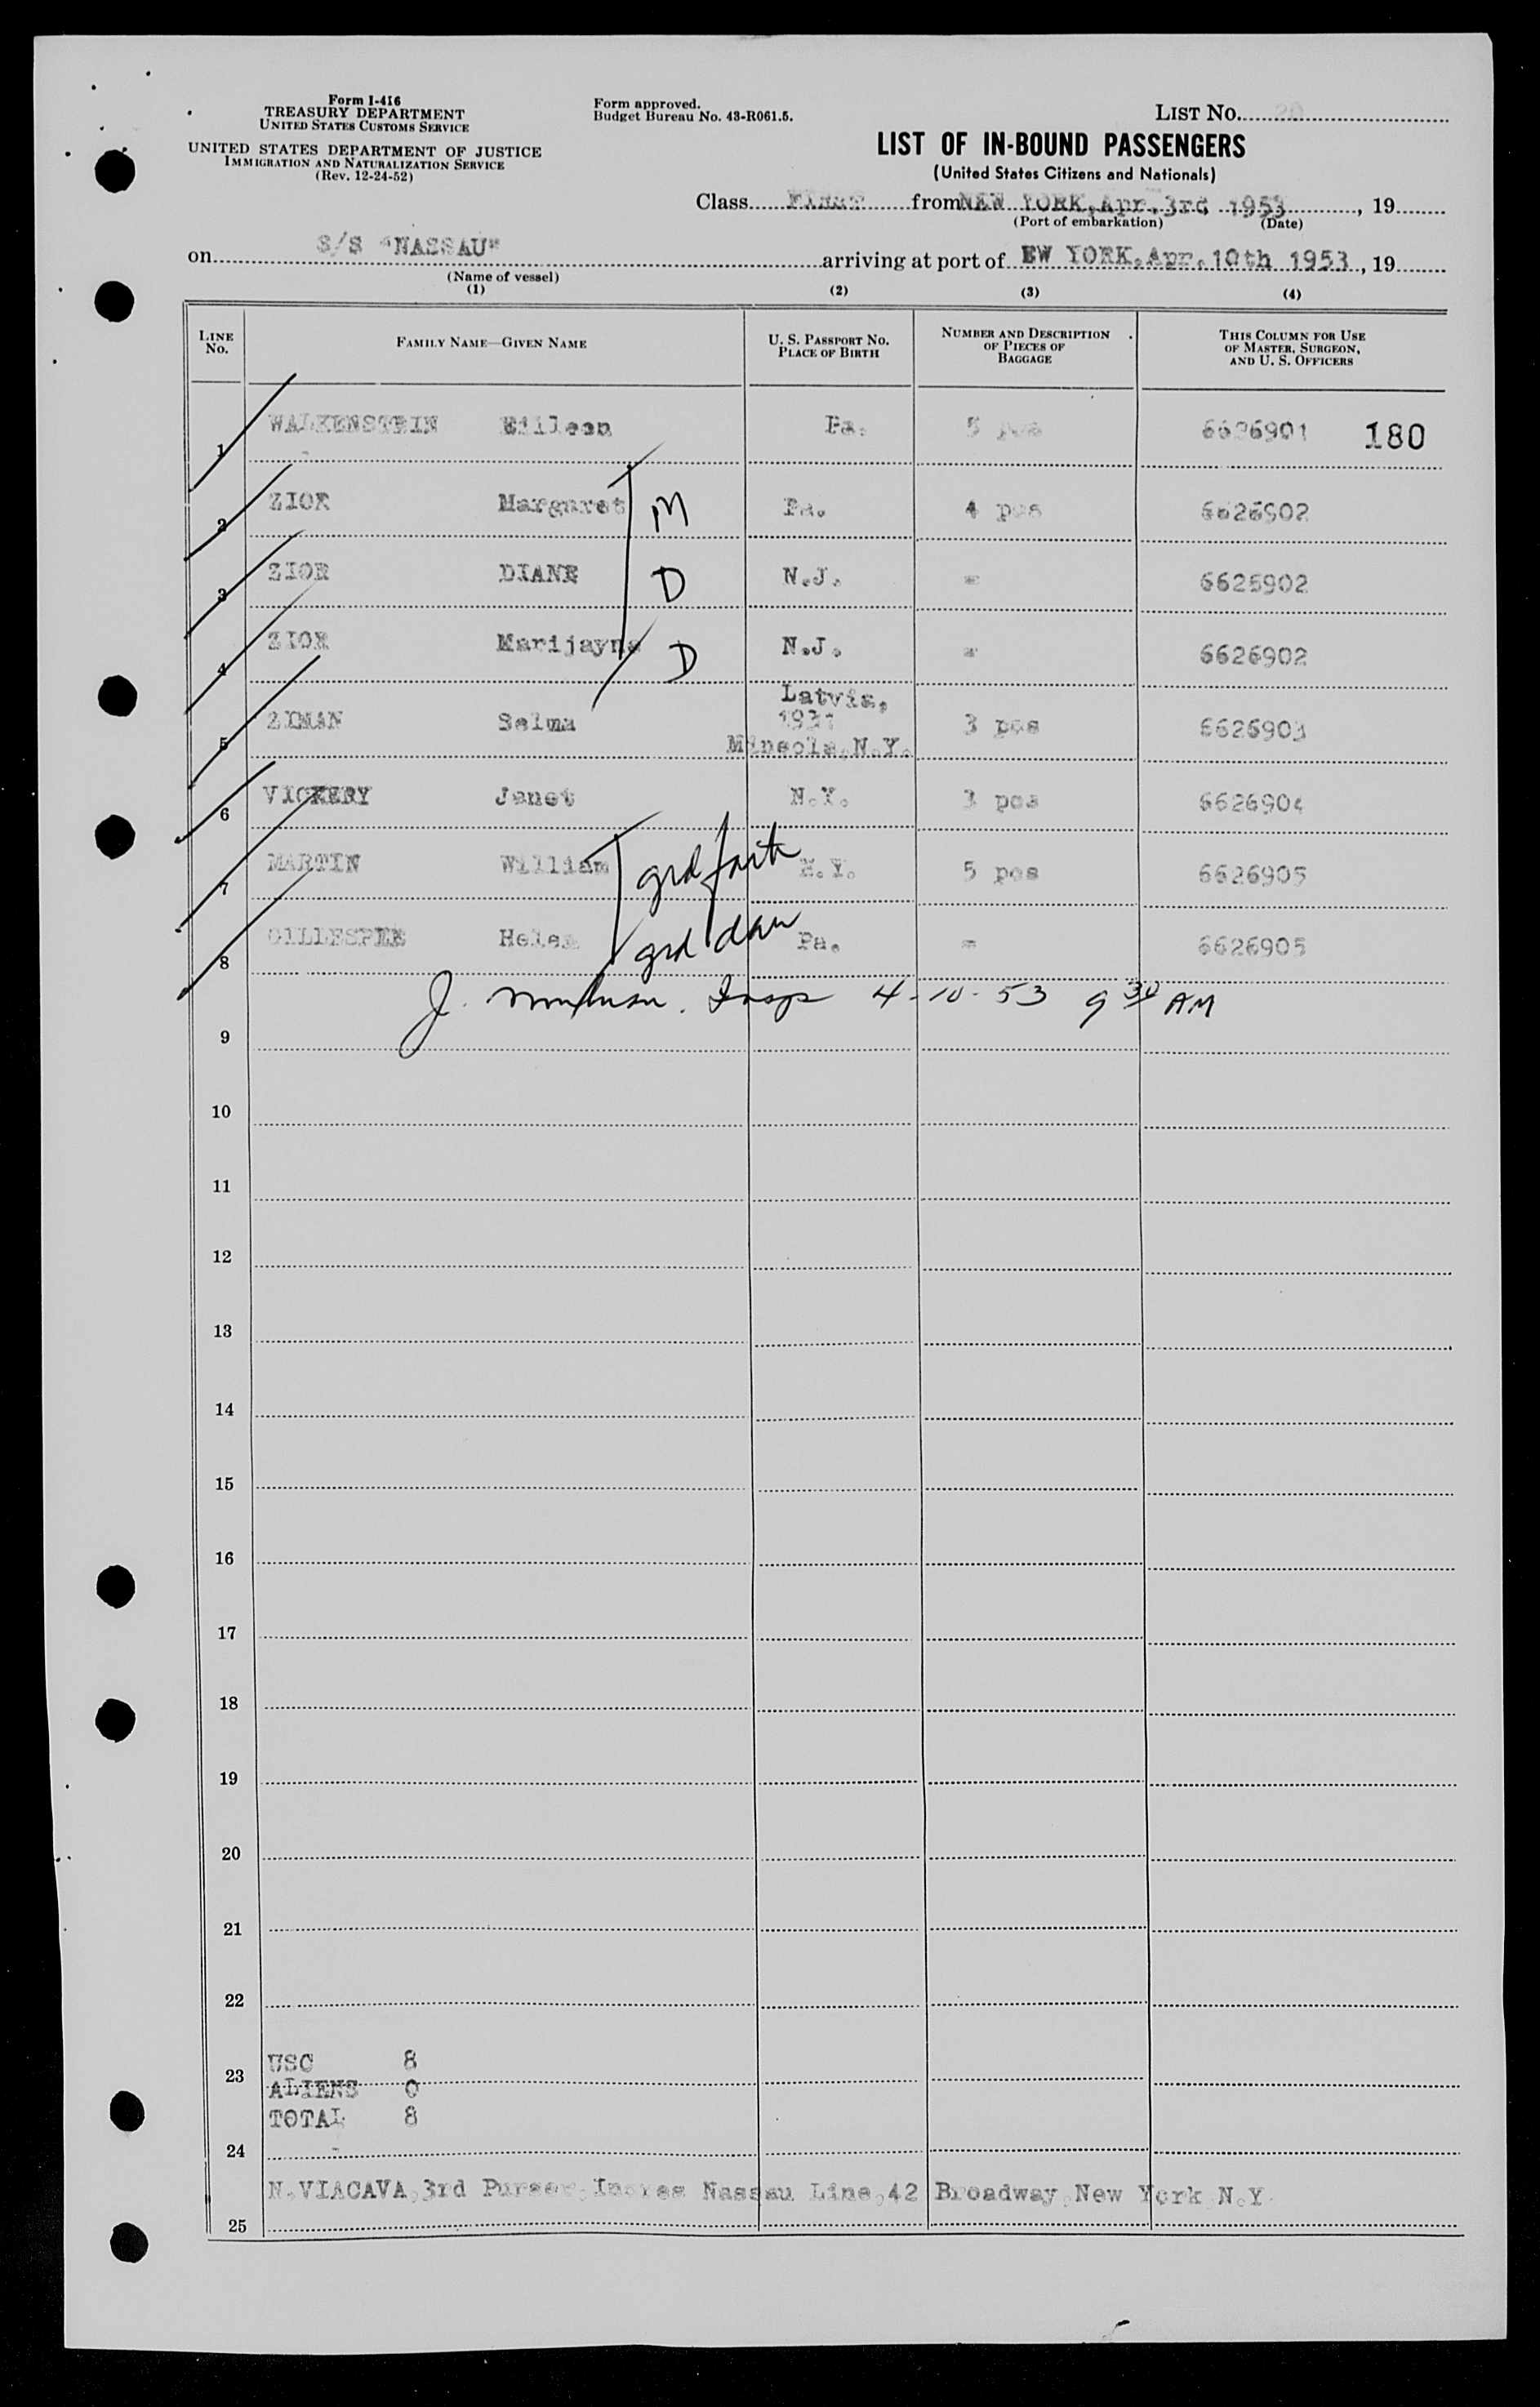 Form I-416
TREASURY DEPARTMENT
UNITED STATES CUSTOMS SERVICE
UNITED STATES DEPARTMENT OF JUSTICE
IMMIGRATION AND NATURALIZATION SERVICE
(Rev. 12-24-52)
Form approved.
Budget Bureau No. 43-R061.5.
LIST NO. 20
LIST OF IN-BOUND PASSENGERS
(United States Citizens and Nationals)
Class FIRST from NEW YORK, Apr, 3rd, 1953, 19
(Port of embarkation) (Date)
on S/S "NASSAU" arriving at port of EW YORK, Apr. 10th 1953, 19
(Name of vessel)
(1) (2) (3) (4)
LINE NO. FAMILY NAME—GIVEN NAME U. S. PASSPORT NO. PLACE OF BIRTH NUMBER AND DESCRIPTION OF PIECES OF BAGGAGE THIS COLUMN FOR USE OF MASTER, SURGEON, AND U. S. OFFICERS
1 WALKENSTEIN Eilleen Pa. 5 pcs 6626901 180
2 ZIOR Margaret M Pa. 4 pcs 6626902
3 ZIOR DIANE D N.J. = 6626902
4 ZIOR Marijayne D N.J. = 6626902
5 ZIMAN Selma Latvia, 1931 Mineola, N.Y. 3 pcs 6626903
6 VICKERY Janet N.Y. 3 pcs 6626904
7 MARTIN William grd fath N.Y. 5 pcs 6626905
8 GILLESPIE Helen grd dau Pa. = 6626905
J. Insp 4-10-53 9 30 AM
9
10
11
12
13
14
15
16
17
18
19
20
21
22
USC 8
23
ALIENS 0
TOTAL 8
24
N. VIACAVA, 3rd Purser, Incres Nassau Line, 42 Broadway, New York, N.Y.
25